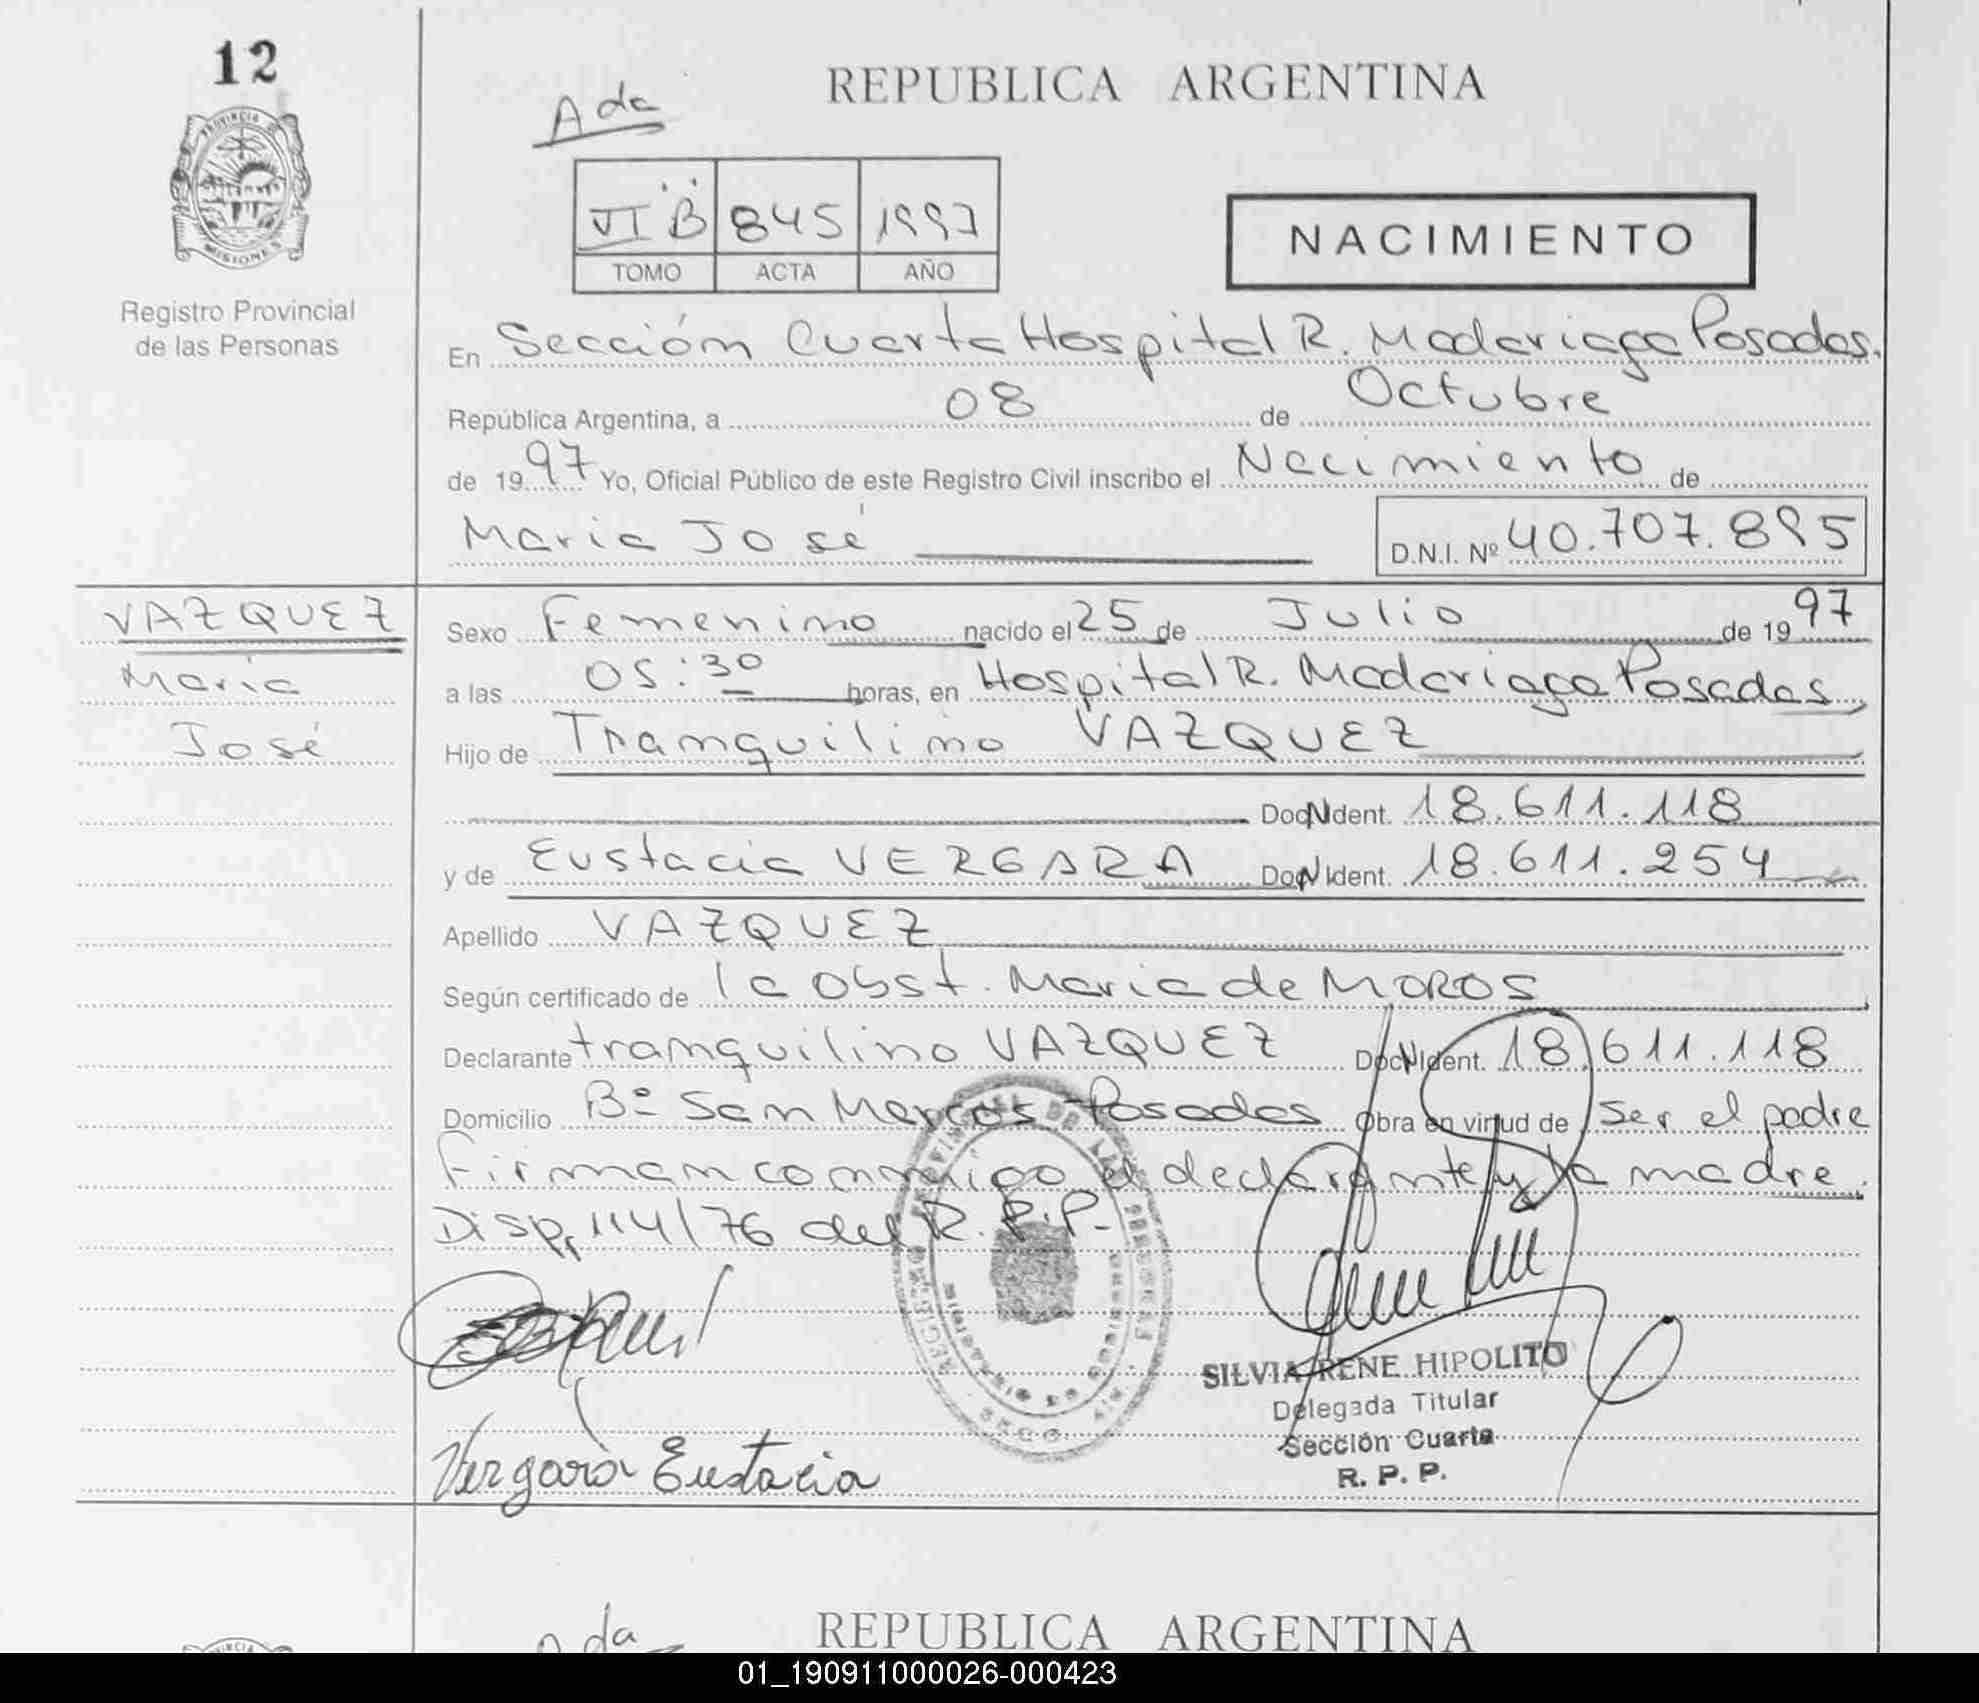 12
REPUBLICA ARGENTINA
Ada
VI B 845 1997
TOMO ACTA AÑO
NACIMIENTO
PROVINCIA DE MISIONES
Registro Provincial
de las Personas
En Sección Cuarta Hospital R. Madariaga Posadas.
República Argentina, a 08 de Octubre
de 1997 Yo, Oficial Público de este Registro Civil inscribo el Nacimiento de
Maria José D.N.I. Nº 40.707.895
VAZQUEZ
Maria
José
Sexo Femenino nacido el 25 de Julio de 1997
a las 05:30 horas, en Hospital R. Madariaga Posadas,
Hijo de Tranquilino VAZQUEZ
Doc. Ident. 18.611.118
y de Eustacia VERGARA Doc. Ident. 18.611.254
Apellido VAZQUEZ
Según certificado de la Obst. Maria de MOROS
Declarante tranquilino VAZQUEZ Doc. Ident. 18.611.118
Domicilio Bº San Marcos Posadas Obra en virtud de ser el padre
Firman conmigo el declarante y la madre.
Disp, 114/76 del R.P.P.
SILVIA RENE HIPOLITO
Delegada Titular
Sección Cuarta
R. P. P.
Vergara Eustacia
Ada
REPUBLICA ARGENTINA
01_190911000026-000423